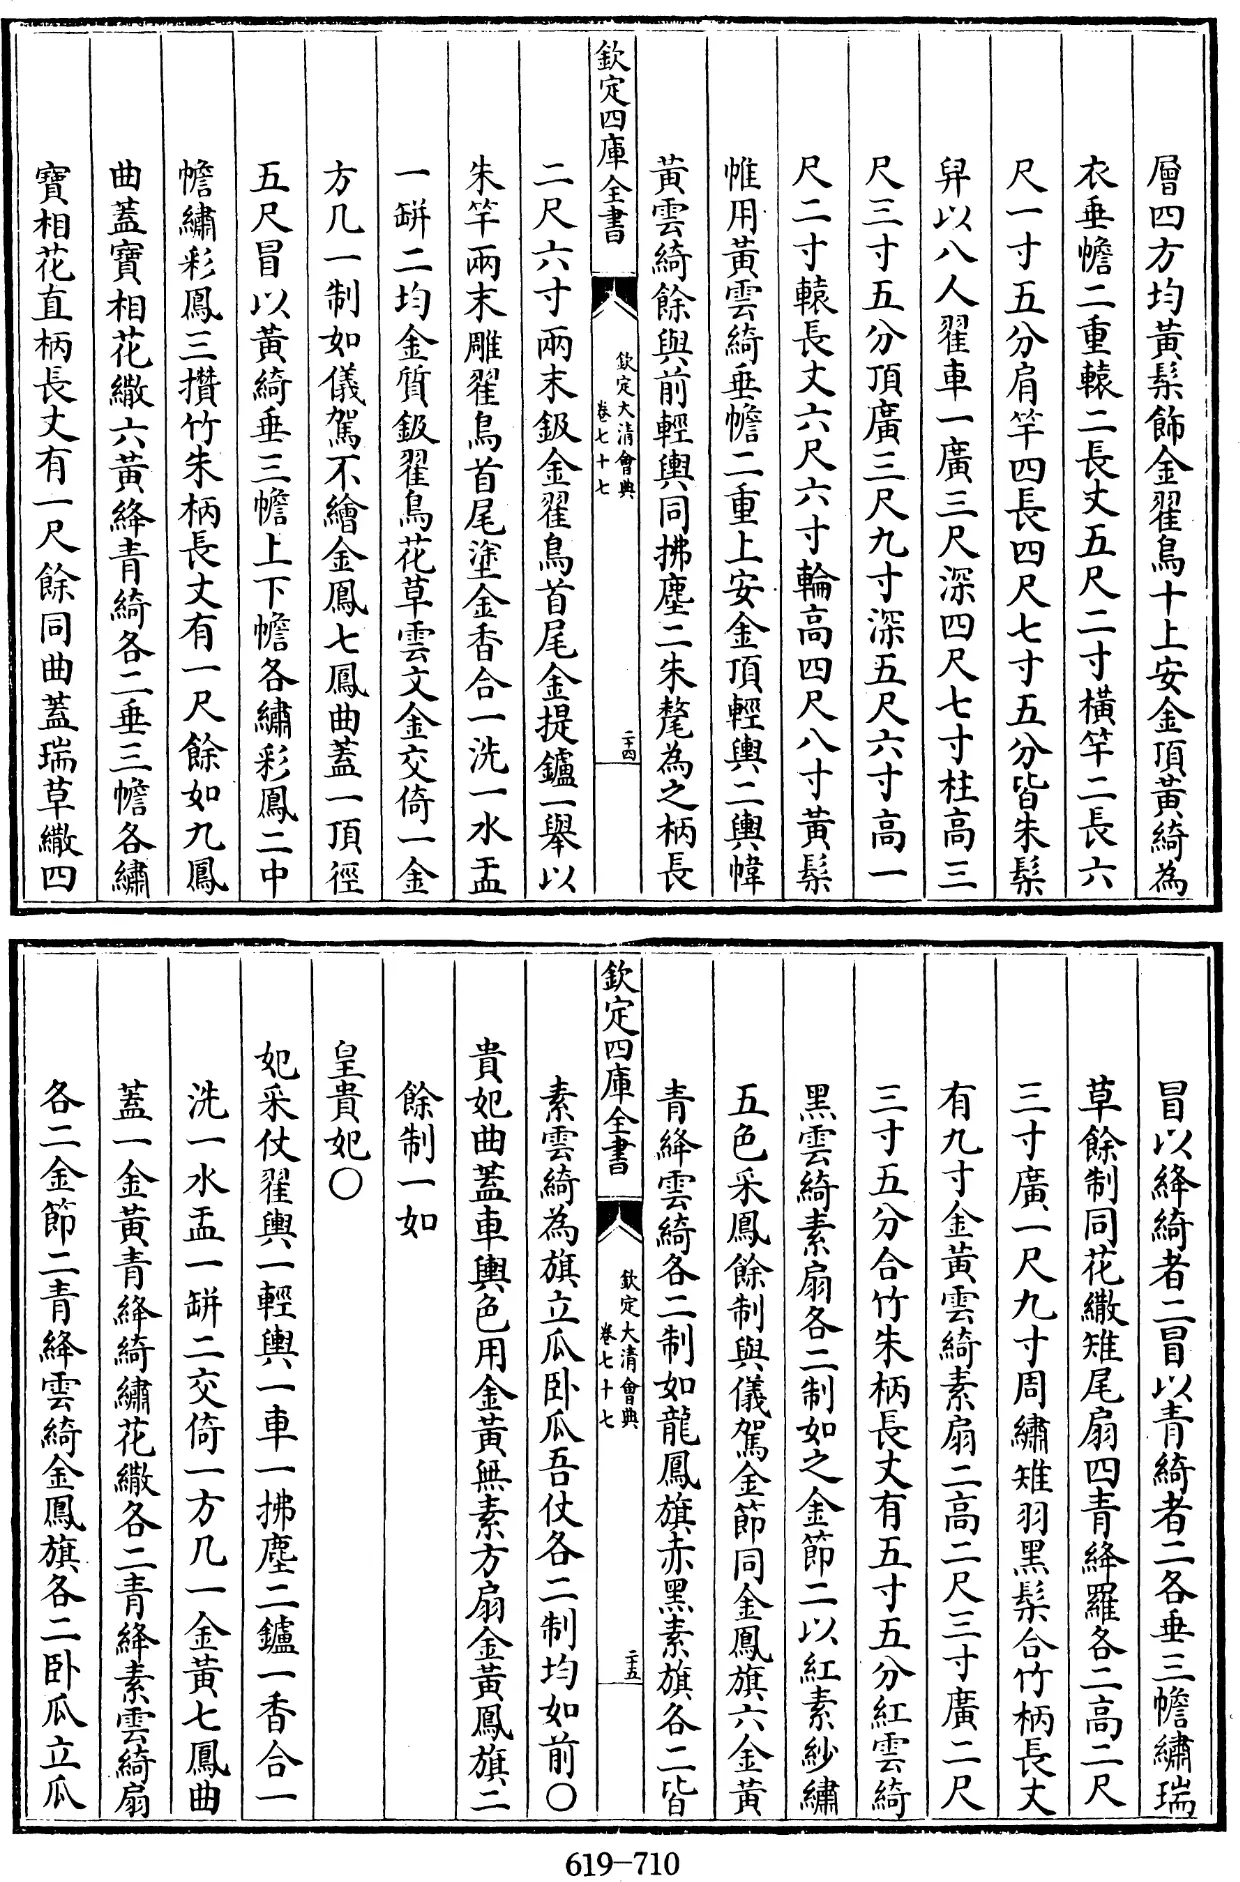 層四方均黃髹飾金翟鳥十上安金頂黃綺為
衣垂幨二重轅二長丈五尺二寸橫竿二長六
尺一寸五分肩竿四長四尺七寸五分皆朱髹
舁以八人翟車一廣三尺深四尺七寸柱高三
尺三寸五分頂廣三尺九寸深五尺六寸高一
尺二寸轅長丈六尺六寸輪高四尺八寸黃髹
帷用黃雲綺垂幨二重上安金頂輕輿二輿幃
黃雲綺餘與前輕輿同拂塵二朱氂為之柄長
欽定四庫全書
欽定大清會典
卷七十七
二十四
二尺六寸兩末鈒金翟鳥首尾金提鑪一舉以
朱竿兩末雕翟鳥首尾塗金香合一洗一水盂
一缾二均金質鈒翟鳥花草雲文金交倚一金
方几一制如儀駕不繪金鳳七鳳曲蓋一頂徑
五尺冒以黃綺垂三幨上下幨各繡彩鳳二中
幨繡彩鳳三攢竹朱柄長丈有一尺餘如九鳳
曲蓋寶相花繖六黃絳青綺各二垂三幨各繡
寶相花直柄長丈有一尺餘同曲蓋瑞草繖四
冒以絳綺者二冒以青綺者二各垂三幨繡瑞
草餘制同花繖雉尾扇四青絳羅各二高二尺
三寸廣一尺九寸周繡雉羽黑髹合竹柄長丈
有九寸金黃雲綺素扇二高二尺三寸廣二尺
三寸五分合竹朱柄長丈有五寸五分紅雲綺
黑雲綺素扇各二制如之金節二以紅素紗繡
五色采鳳餘制與儀駕金節同金鳳旗六金黃
青絳雲綺各二制如龍鳳旗赤黑素旗各二皆
欽定四庫全書
欽定大清會典
卷七十七
二十五
素雲綺為旗立瓜卧瓜吾仗各二制均如前〇
貴妃曲蓋車輿色用金黃無素方扇金黃鳳旗二
餘制一如
皇貴妃〇
妃采仗翟輿一輕輿一車一拂塵二鑪一香合一
洗一水盂一缾二交倚一方几一金黃七鳳曲
蓋一金黃青絳綺繡花繖各二青絳素雲綺扇
各二金節二青絳雲綺金鳳旗各二卧瓜立瓜
619-710